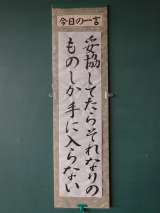 今日の一言
妥協してたらそれなりの
ものしか手に入らない